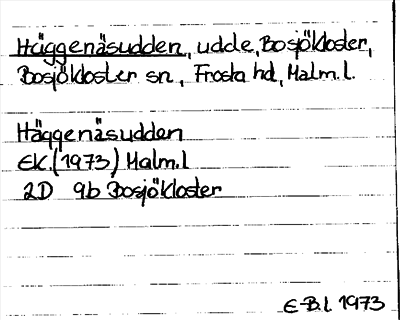 Häggenäsudden, udde, Bosjökloster,
Bosjökloster sn., Frosta hd, Malm.l.
Häggenäsudden
EK.(1973) Malm.l
2D 9b Bosjökloster
E-B.l. 1973